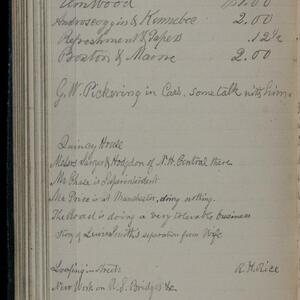 Atwood $1.00
Androscoggin & Kennebec 2.00
Refreshment & Papers .12½
Boston & Maine 2.00
G. W. Pickering in Cars, some talk with him.
Quincy House
Messrs Sanger & Hodgdon of N.H. Central there
Mr Chase is Superintendent
Mr Price is at Manchester, doing nothing.
The Road is doing a very tolerable business
Story of Lewis Smith's separation from Wife
Loafing in streets R. H. Rice
New Work on R.S. Bridges &c.